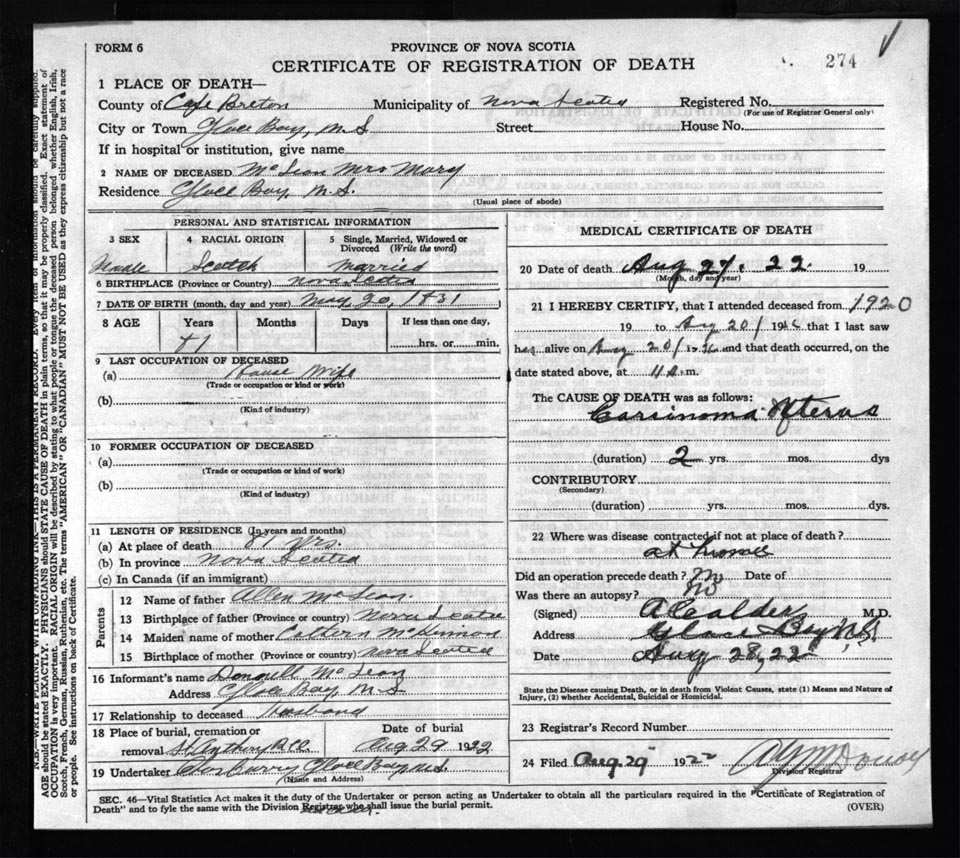 FORM 6
PROVINCE OF NOVA SCOTIA
CERTIFICATE OF REGISTRATION OF DEATH
274
1 PLACE OF DEATH—
County of Cape Breton Municipality of Nova Scotia Registered No.
(For use of Registrar General only)
City or Town Glace Bay, N.S. Street House No.
If in hospital or institution, give name
2 NAME OF DECEASED McLean Mrs Mary
Residence Glace Bay, N.S.
(Usual place of abode)
PERSONAL AND STATISTICAL INFORMATION
3 SEX 4 RACIAL ORIGIN 5 Single, Married, Widowed or Divorced (Write the word)
Female Scotch Married
6 BIRTHPLACE (Province or Country) Nova Scotia
7 DATE OF BIRTH (month, day and year) May 20, 1831
8 AGE Years Months Days If less than one day,
hrs. or min.
9 LAST OCCUPATION OF DECEASED
(a) House Wife
(Trade or occupation or kind or work)
(b)
(Kind of industry)
10 FORMER OCCUPATION OF DECEASED
(a)
(Trade or occupation or kind of work)
(b)
(Kind of industry)
11 LENGTH OF RESIDENCE (In years and months)
(a) At place of death yrs.
(b) In province Nova Scotia
(c) In Canada (if an immigrant)
Parents
12 Name of father Allen McLean
13 Birthplace of father (Province or country) Nova Scotia
14 Maiden name of mother McKinnon
15 Birthplace of mother (Province or country) Nova Scotia
16 Informant's name McLean
Address Glace Bay N.S.
17 Relationship to deceased husband
18 Place of burial, cremation or removal St Anthony Date of burial Aug 29 1922
19 Undertaker Curry Glace Bay N.S.
(Name and Address)
MEDICAL CERTIFICATE OF DEATH
20 Date of death Aug 27. 22. 19
(Month, day and year)
21 I HEREBY CERTIFY, that I attended deceased from 1920
19 to Aug 20/ 19 that I last saw
alive on Aug 20/ and that death occurred, on the
date stated above, at 11 m.
The CAUSE OF DEATH was as follows:
Carsinoma Uterus
(duration) 2 yrs. mos. dys
CONTRIBUTORY
(Secondary)
(duration) yrs. mos. dys.
22 Where was disease contracted if not at place of death?
at home
Did an operation precede death? No Date of
Was there an autopsy? No
(Signed) A Calder M.D.
Address Glace Bay N.S.
Date Aug 28, 22
State the Disease causing Death, or in death from Violent Causes, state (1) Means and Nature of Injury, (2) whether Accidental, Suicidal or Homicidal.
23 Registrar's Record Number
24 Filed Aug 29 1922
Division Registrar
SEC. 46—Vital Statistics Act makes it the duty of the Undertaker or person acting as Undertaker to obtain all the particulars required in the "Certificate of Registration of
Death" and to fyle the same with the Division Registrar who shall issue the burial permit.
(OVER)
N.B.—WRITE PLAINLY WITH UNFADING INK—THIS IS A PERMANENT RECORD. Every item of information should be carefully supplied.
AGE should be stated EXACTLY. PHYSICIANS should STATE CAUSE OF DEATH in plain terms, so that it may be properly classified. Exact statement of
OCCUPATION is very important. RACIAL ORIGIN will be described by stating to what people or tongue the deceased person belonged whether English, Irish,
Scotch, French, German, Russian, Ruthenian, etc. The terms "AMERICAN" OR "CANADIAN" MUST NOT BE USED as they express citizenship but not a race
or people. See instructions on back of Certificate.